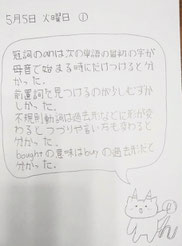 5月5日 火曜日 ①
冠詞のanは次の単語の最初の字が
母音で始まる時にだけつけると分
かった。
前置詞を見つけるのが少しむずか
しかった。
不規則動詞は過去形などに形が変
わるとつづりや言い方も変わると
分かった。
boughtの意味はbuyの過去形だと
分かった。